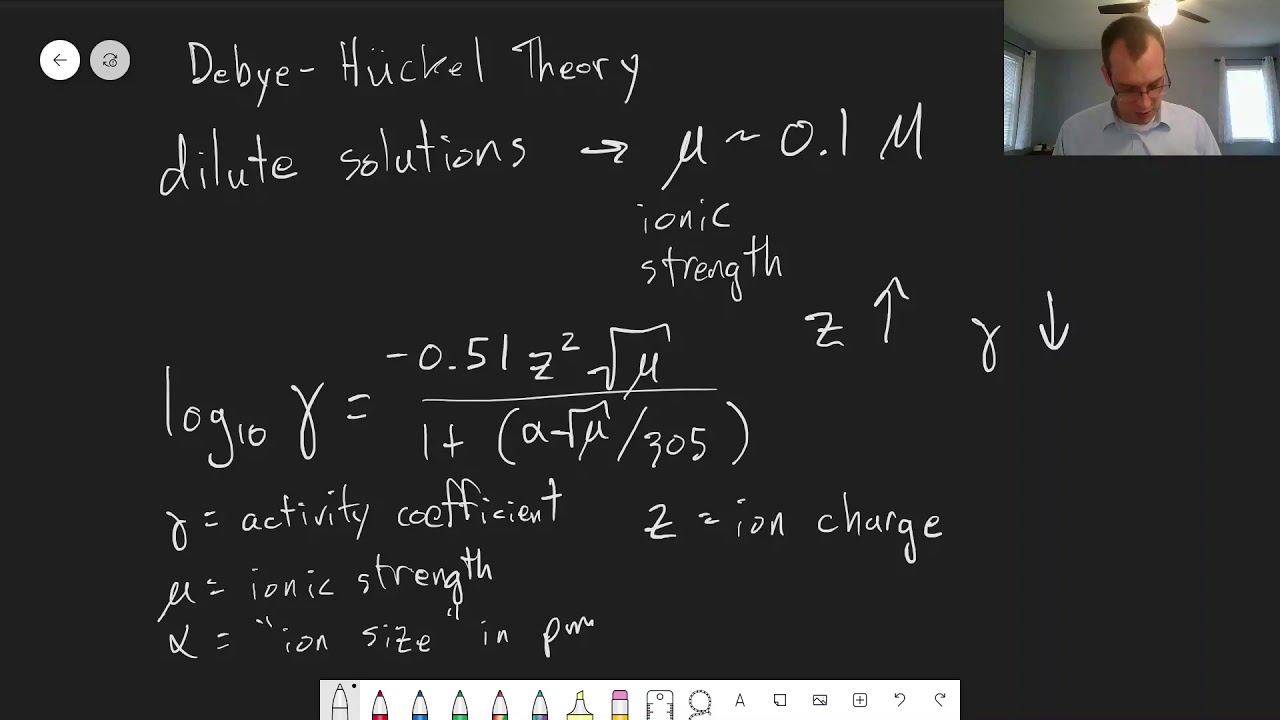 Debye-Hückel Theory
dilute solutions → μ ~ 0.1 M
ionic
strength
z ↑ γ ↓
log₁₀ γ = -0.51 z² √μ / 1 + (α√μ/305)
γ = activity coefficient
z = ion charge
μ = ionic strength
α = "ion size" in pm
A